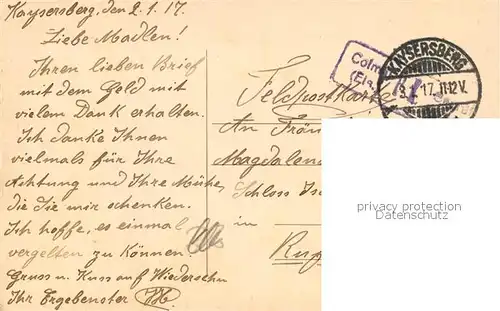 Kaysersberg, den 2.1.17.
Liebe Madlen!
Ihren lieben Brief
mit dem Geld mit
vielem Dank erhalten.
Ich danke Ihnen
vielmals für Ihre
Achtung und Ihre Mühe,
die Sie mir schenken.
Ich hoffe, es einmal
vergelten zu können.
Gruss u. Kuss auf Wiedersehn
Ihr Ergebenster
Colm
(Els.
KAYSERSBERG
17. 11-12 V.
Feldpostkarte
An Fräu
Magdalena
Schloss
in
privacy protection
Datenschutz